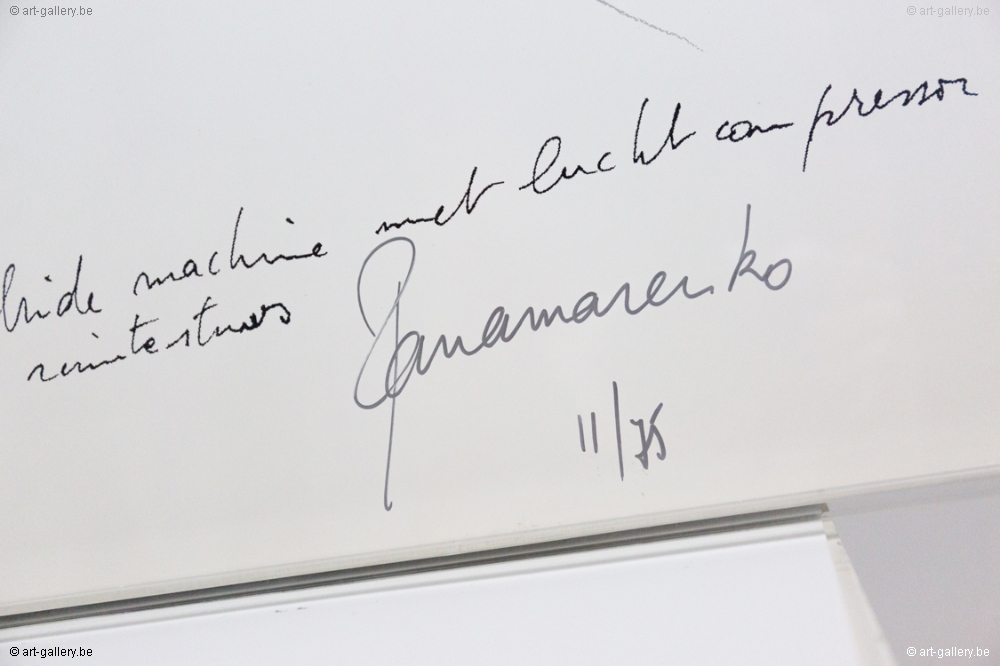 © art-gallery.be
© art-gallery.be
machine met lucht compressor
Panamarenko
11/75
© art-gallery.be
© art-gallery.be